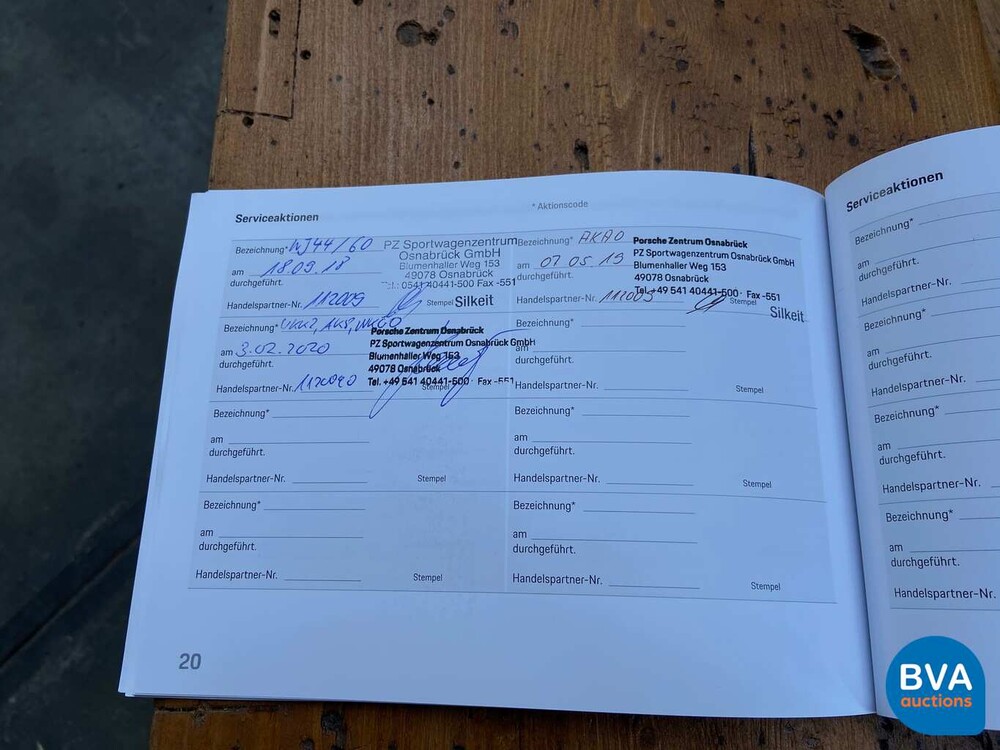 Serviceaktionen
* Aktionscode
Bezeichnung* WJ44/60
am 18.09.18
durchgeführt.
Handelspartner-Nr. 112009
PZ Sportwagenzentrum
Osnabrück GmbH
Blumenhaller Weg 153
49078 Osnabrück
Tel.: 0541 40441-500 Fax -551
Stempel Silkeit
Bezeichnung* AKA0
am 07.05.19
durchgeführt.
Handelspartner-Nr. 112009
Porsche Zentrum Osnabrück
PZ Sportwagenzentrum Osnabrück GmbH
Blumenhaller Weg 153
49078 Osnabrück
Tel. +49 541 40441-500 · Fax -551
Stempel
Silkeit
Bezeichnung*
am 3.02.2020
durchgeführt.
Handelspartner-Nr.
Porsche Zentrum Osnabrück
PZ Sportwagenzentrum Osnabrück GmbH
Blumenhaller Weg 153
49078 Osnabrück
Tel. +49 541 40441-500 · Fax -551
Stempel
Bezeichnung*
am
durchgeführt.
Handelspartner-Nr.
Stempel
Bezeichnung*
am
durchgeführt.
Handelspartner-Nr.
Stempel
Bezeichnung*
am
durchgeführt.
Handelspartner-Nr.
Stempel
Bezeichnung*
am
durchgeführt.
Handelspartner-Nr.
Stempel
Bezeichnung*
am
durchgeführt.
Handelspartner-Nr.
Stempel
20
Serviceaktionen
Bezeichnung*
am
durchgeführt.
Handelspartner-Nr.
Bezeichnung*
am
durchgeführt.
Handelspartner-Nr.
Bezeichnung*
am
durchgeführt.
Handelspartner-Nr.
Bezeichnung*
am
durchgeführt.
Handelspartner-Nr.
BVA
auctions